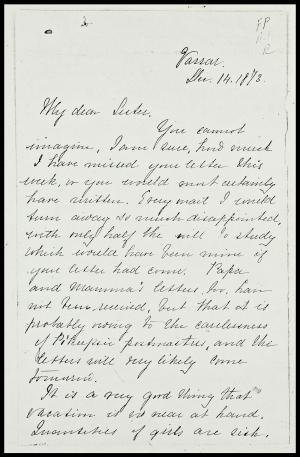 FP
R
Vassar.
Dec. 14. 1873.
My dear Sister,
You cannot
imagine, I am sure, how much
I have missed your letter this
week, or you would most certainly
have written. Every mail I would
turn away so much disappointed,
with only half the will to study
which would have been mine if
your letter had come. Papa
and Mamma's letters, too, have
not been received, but that it is
probably owing to the carelessness
of P'Keepsie postmasters, and the
letters will very likely come
tomorrow.
It is a very good thing that
vacation is so near at hand.
Quantities of girls are sick.